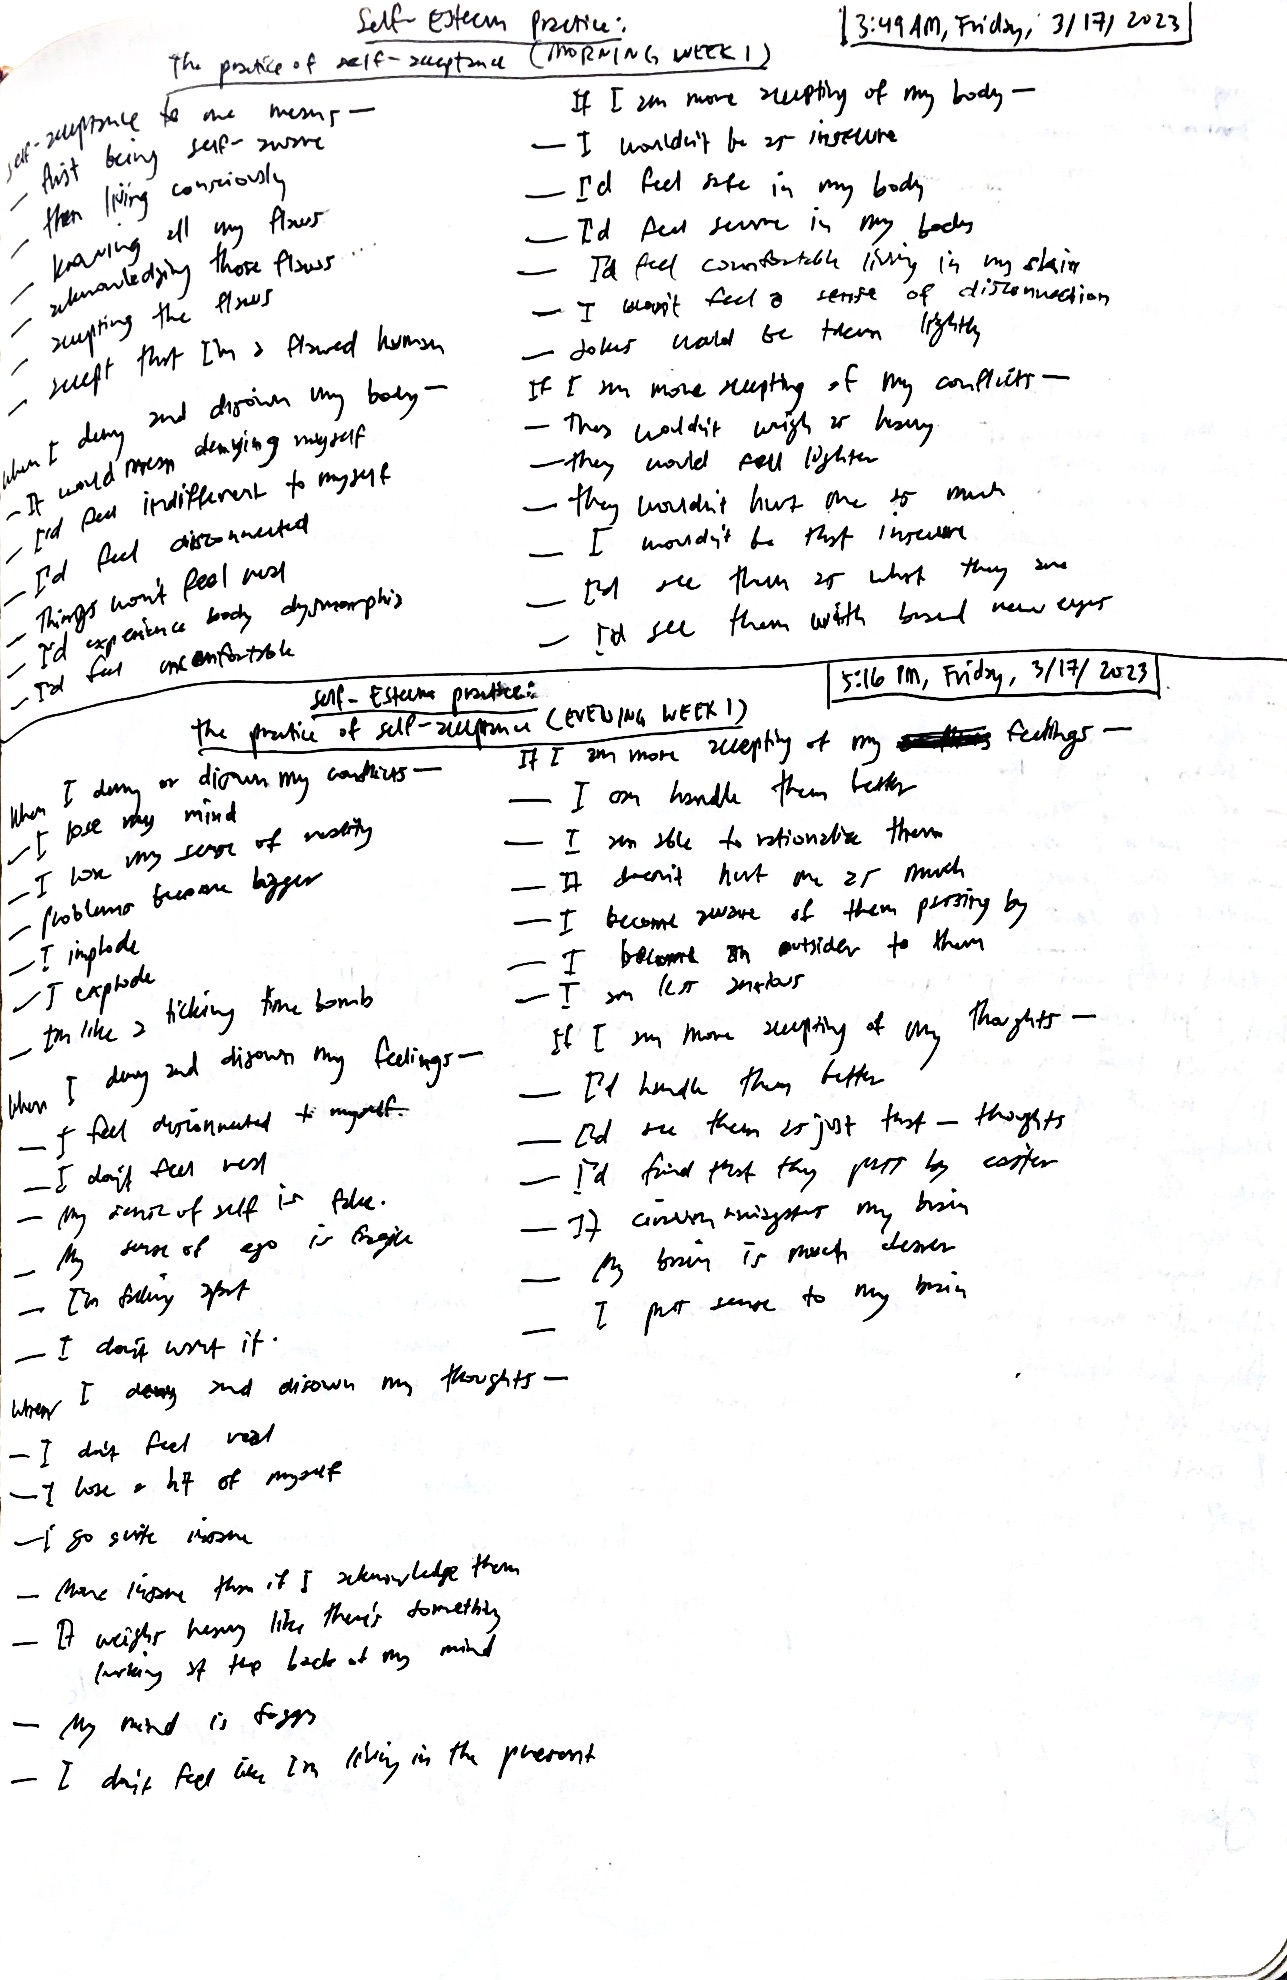 Self-Esteem Practice:
3:49 AM, Friday, 3/17/2023
The practice of self-acceptance (MORNING WEEK 1)
self-acceptance to me means —
— first being self-aware
— then living consciously
— knowing all my flaws
— acknowledging those flaws...
— accepting the flaws
— accept that I'm a flawed human
When I deny and disown my body —
— It would mean denying myself
— I'd feel indifferent to myself
— I'd feel disconnected
— Things won't feel real
— I'd experience body dysmorphia
— I'd feel uncomfortable
If I am more accepting of my body —
— I wouldn't be as insecure
— I'd feel safe in my body
— I'd feel secure in my body
— I'd feel comfortable living in my skin
— I won't feel a sense of disconnection
— Jokes would be taken lightly
If I am more accepting of my conflicts —
— They wouldn't weigh as heavy
— they would feel lighter
— they wouldn't hurt me as much
— I wouldn't be that insecure
— I'd see them as what they are
— I'd see them with brand new eyes
Self-Esteem practice:
5:16 PM, Friday, 3/17/2023
The practice of self-acceptance (EVENING WEEK 1)
When I deny or disown my conflicts —
— I lose my mind
— I lose my sense of reality
— Problems become bigger
— I implode
— I explode
— I'm like a ticking time bomb
When I deny and disown my feelings —
— I feel disconnected to myself.
— I don't feel real
— My sense of self is fake.
— My sense of ego is fragile
— I'm falling apart
— I don't want it.
When I deny and disown my thoughts —
— I don't feel real
— I lose a bit of myself
— I go quite insane
— More insane than if I acknowledge them
— It weighs heavy like there's something
lurking at the back of my mind
— My mind is foggy
— I don't feel like I'm living in the present
If I am more accepting of my feelings —
— I can handle them better
— I am able to rationalize them
— It doesn't hurt me as much
— I become aware of them passing by
— I become an outsider to them
— I am less anxious
If I am more accepting of my thoughts —
— I'd handle them better
— I'd see them as just that — thoughts
— I'd find that they pass by easier
— It my brain
— My brain is much clearer
— I put sense to my brain